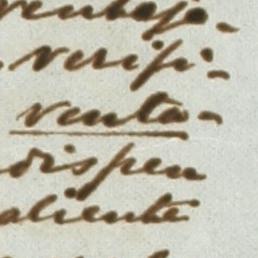 ventajo-
verifi-
venta-
dispen
aliente